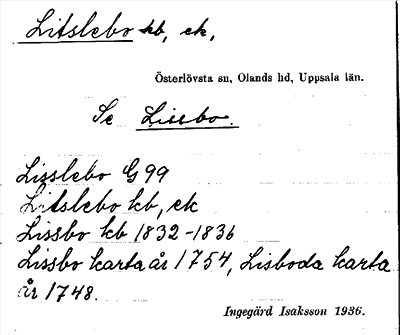 Litslebo kb, ek,
Österlövsta sn, Olands hd, Uppsala län.
Se Lissbo.
Lisslebo G 99
Litslebo kb, ek
Lissbo kb 1832-1836
Lissbo karta år 1754, Lisboda karta
år 1748.
Ingegärd Isaksson 1936.